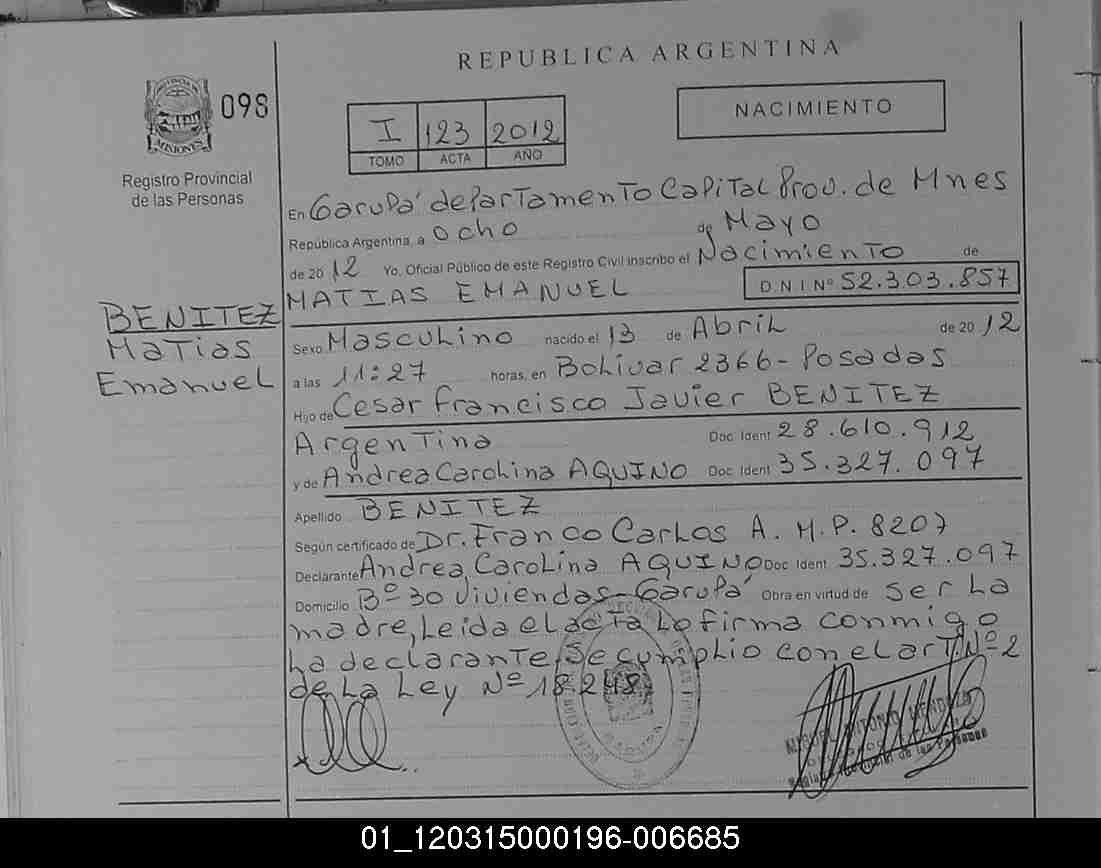 REPUBLICA ARGENTINA
098
NACIMIENTO
I 123 2012
TOMO ACTA AÑO
MISIONES
Registro Provincial
de las Personas
En Garupá departamento Capital Prov. de Mnes
República Argentina, a ocho de Mayo
de 2012 Yo, Oficial Público de este Registro Civil inscribo el Nacimiento de
MATIAS EMANUEL D N I Nº 52.303.857
BENITEZ
Matias
Emanuel
Sexo Masculino nacido el 13 de Abril de 2012
a las 11:27 horas, en Bolívar 2366- Posadas
Hijo de Cesar Francisco Javier BENITEZ
Argentina Doc Ident 28.610.912
y de Andrea Carolina AQUINO Doc Ident 35.327.097
Apellido BENITEZ
Según certificado de Dr. Franco Carlos A. M.P. 8207
Declarante Andrea Carolina AQUINO Doc Ident 35.327.097
Domicilio Bº 30 Viviendas- Garupá Obra en virtud de ser la
madre, Leida el acta lo firma conmigo
la declarante, Se cumplio con el art. Nº 2
de la Ley Nº 18.248.
MIGUEL ANTONIO MENDOZA
Registro Provincial de las Personas
01_120315000196-006685